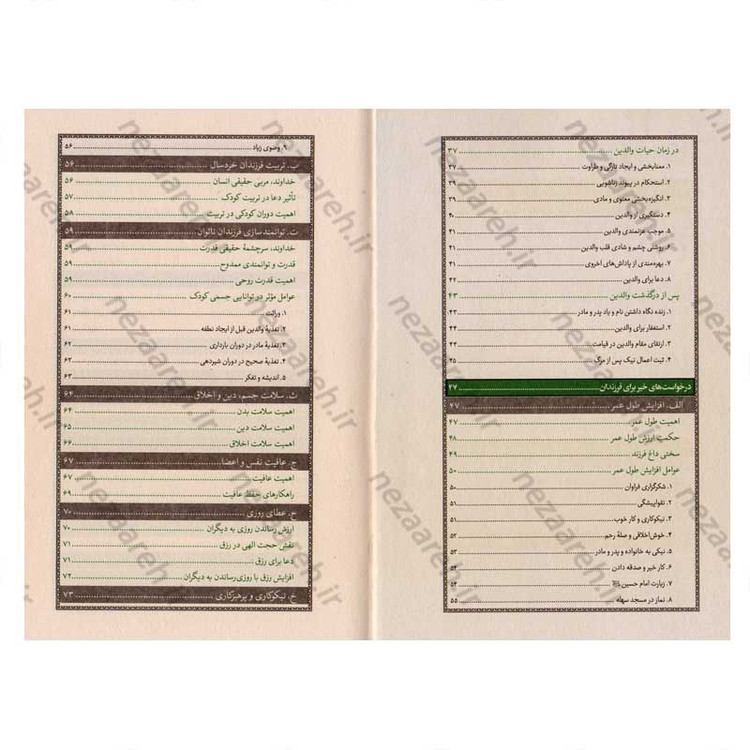 در زمان حیات والدین ..... ۳۷
۱. معنابخشی و ایجاد تازگی و طراوت ..... ۳۷
۲. استحکام در پیوند زناشویی ..... ۳۹
۳. انگیزه‌بخشی معنوی و مادی ..... ۳۹
۴. دستگیری از والدین ..... ۴۰
۵. موجب عزتمندی والدین ..... ۴۱
۶. روشنی چشم و شادی قلب والدین ..... ۴۱
۷. بهره‌مندی از پاداش‌های اخروی ..... ۴۱
۸. دعا برای والدین ..... ۴۲
پس از درگذشت والدین ..... ۴۳
۱. زنده نگاه داشتن نام و یاد پدر و مادر ..... ۴۳
۲. استغفار برای والدین ..... ۴۴
۳. ارتقای مقام والدین در قیامت ..... ۴۴
۴. ثبت اعمال نیک پس از مرگ ..... ۴۵
درخواست‌های خیر برای فرزندان ..... ۴۷
الف. افزایش طول عمر ..... ۴۷
اهمیت طول عمر ..... ۴۷
حکمت ارزش طول عمر ..... ۴۸
سختی داغ فرزند ..... ۴۹
عوامل افزایش طول عمر ..... ۵۰
۱. شکرگزاری فراوان ..... ۵۰
۲. تقواپیشگی ..... ۵۱
۳. نیکوکاری و کار خوب ..... ۵۱
۴. خوش‌اخلاقی و صلهٔ رحم ..... ۵۲
۵. نیکی به خانواده و پدر و مادر ..... ۵۲
۶. کار خیر و صدقه دادن ..... ۵۳
۷. زیارت امام حسین ..... ۵۴
۸. نماز در مسجد سهله ..... ۵۵
۹. وضوی زیاد ..... ۵۶
ب. تربیت فرزندان خردسال ..... ۵۶
خداوند، مربی حقیقی انسان ..... ۵۶
تأثیر دعا در تربیت کودک ..... ۵۷
اهمیت دوران کودکی در تربیت ..... ۵۸
ت. توانمندسازی فرزندان ناتوان ..... ۵۹
خداوند، سرچشمهٔ حقیقی قدرت ..... ۵۹
قدرت و توانمندی ممدوح ..... ۵۹
اهمیت قدرت روحی ..... ۵۹
عوامل مؤثر در توانایی جسمی کودک ..... ۶۰
۱. وراثت ..... ۶۱
۲. تغذیهٔ والدین قبل از ایجاد نطفه ..... ۶۱
۳. تغذیهٔ مادر در دوران بارداری ..... ۶۲
۴. تغذیهٔ صحیح در دوران شیردهی ..... ۶۲
۵. اندیشه و تفکر ..... ۶۳
ث. سلامت جسم، دین و اخلاق ..... ۶۴
اهمیت سلامت بدن ..... ۶۴
اهمیت سلامت دین ..... ۶۵
اهمیت سلامت اخلاق ..... ۶۶
ج. عافیت نفس و اعضا ..... ۶۷
اهمیت عافیت ..... ۶۷
راهکارهای حفظ عافیت ..... ۶۹
ح. عطای روزی ..... ۷۰
ارزش رساندن روزی به دیگران ..... ۷۰
نقش حجت الهی در رزق ..... ۷۱
دعا برای رزق ..... ۷۱
افزایش رزق با روزی‌رساندن به دیگران ..... ۷۲
خ. نیکوکاری و پرهیزکاری ..... ۷۳
nezaareh.ir